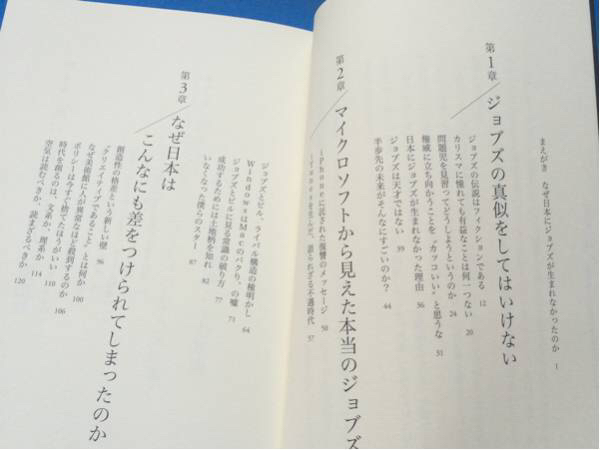 まえがき　なぜ日本にジョブズが生まれなかったのか　1
第1章
ジョブズの真似をしてはいけない
ジョブズの伝説はフィクションである　12
カリスマに憧れても有益なことは何一つない　20
問題児を見習ってどうしようというのか　24
権威に立ち向かうことを“カッコいい”と思うな　31
日本にジョブズが生まれなかった理由　36
ジョブズは天才ではない　39
半歩先の未来がそんなにすごいのか？　44
第2章
マイクロソフトから見えた本当のジョブズ
iPhoneに託された復讐のメッセージ　50
iTunesを生んだ、語られざる不遇時代　57
ジョブズとビル、ライバル構造の種明かし　64
WindowsはMacのパクり、の嘘　71
ジョブズとビルに見る常識の破り方　77
成功するためには土地柄を知れ　82
いなくなった僕らのスター　87
第3章
なぜ日本は
こんなにも差をつけられてしまったのか
創造性の格差という新しい壁　96
“クリエイティブであること”とは何か　100
なぜ美術館に人が異常なほど殺到するのか　106
ポリシーは今すぐ捨てたほうがいい　110
時代を創るのは、文系か、理系か　114
空気は読むべきか、読まざるべきか　120